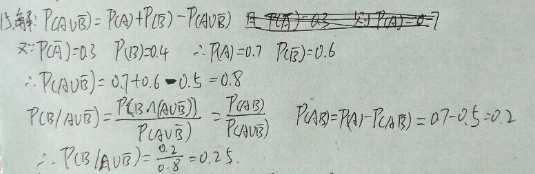 15.解: P(A∪B̅)=P(A)+P(B̅)-P(A∪B̅) 且P(A̅)=0.3 则P(A)=0.7
又∵P(A̅)=0.3 P(B)=0.4 ∴P(A)=0.7 P(B̅)=0.6
∴P(A∪B̅)=0.7+0.6-0.5=0.8
P(B/A∪B̅)=P{B∩(A∪B̅)}/P(A∪B̅)=P(AB)/P(A∪B̅) P(AB)=P(A)-P(AB̅)=0.7-0.5=0.2
∴P(B/A∪B̅)=0.2/0.8=0.25.